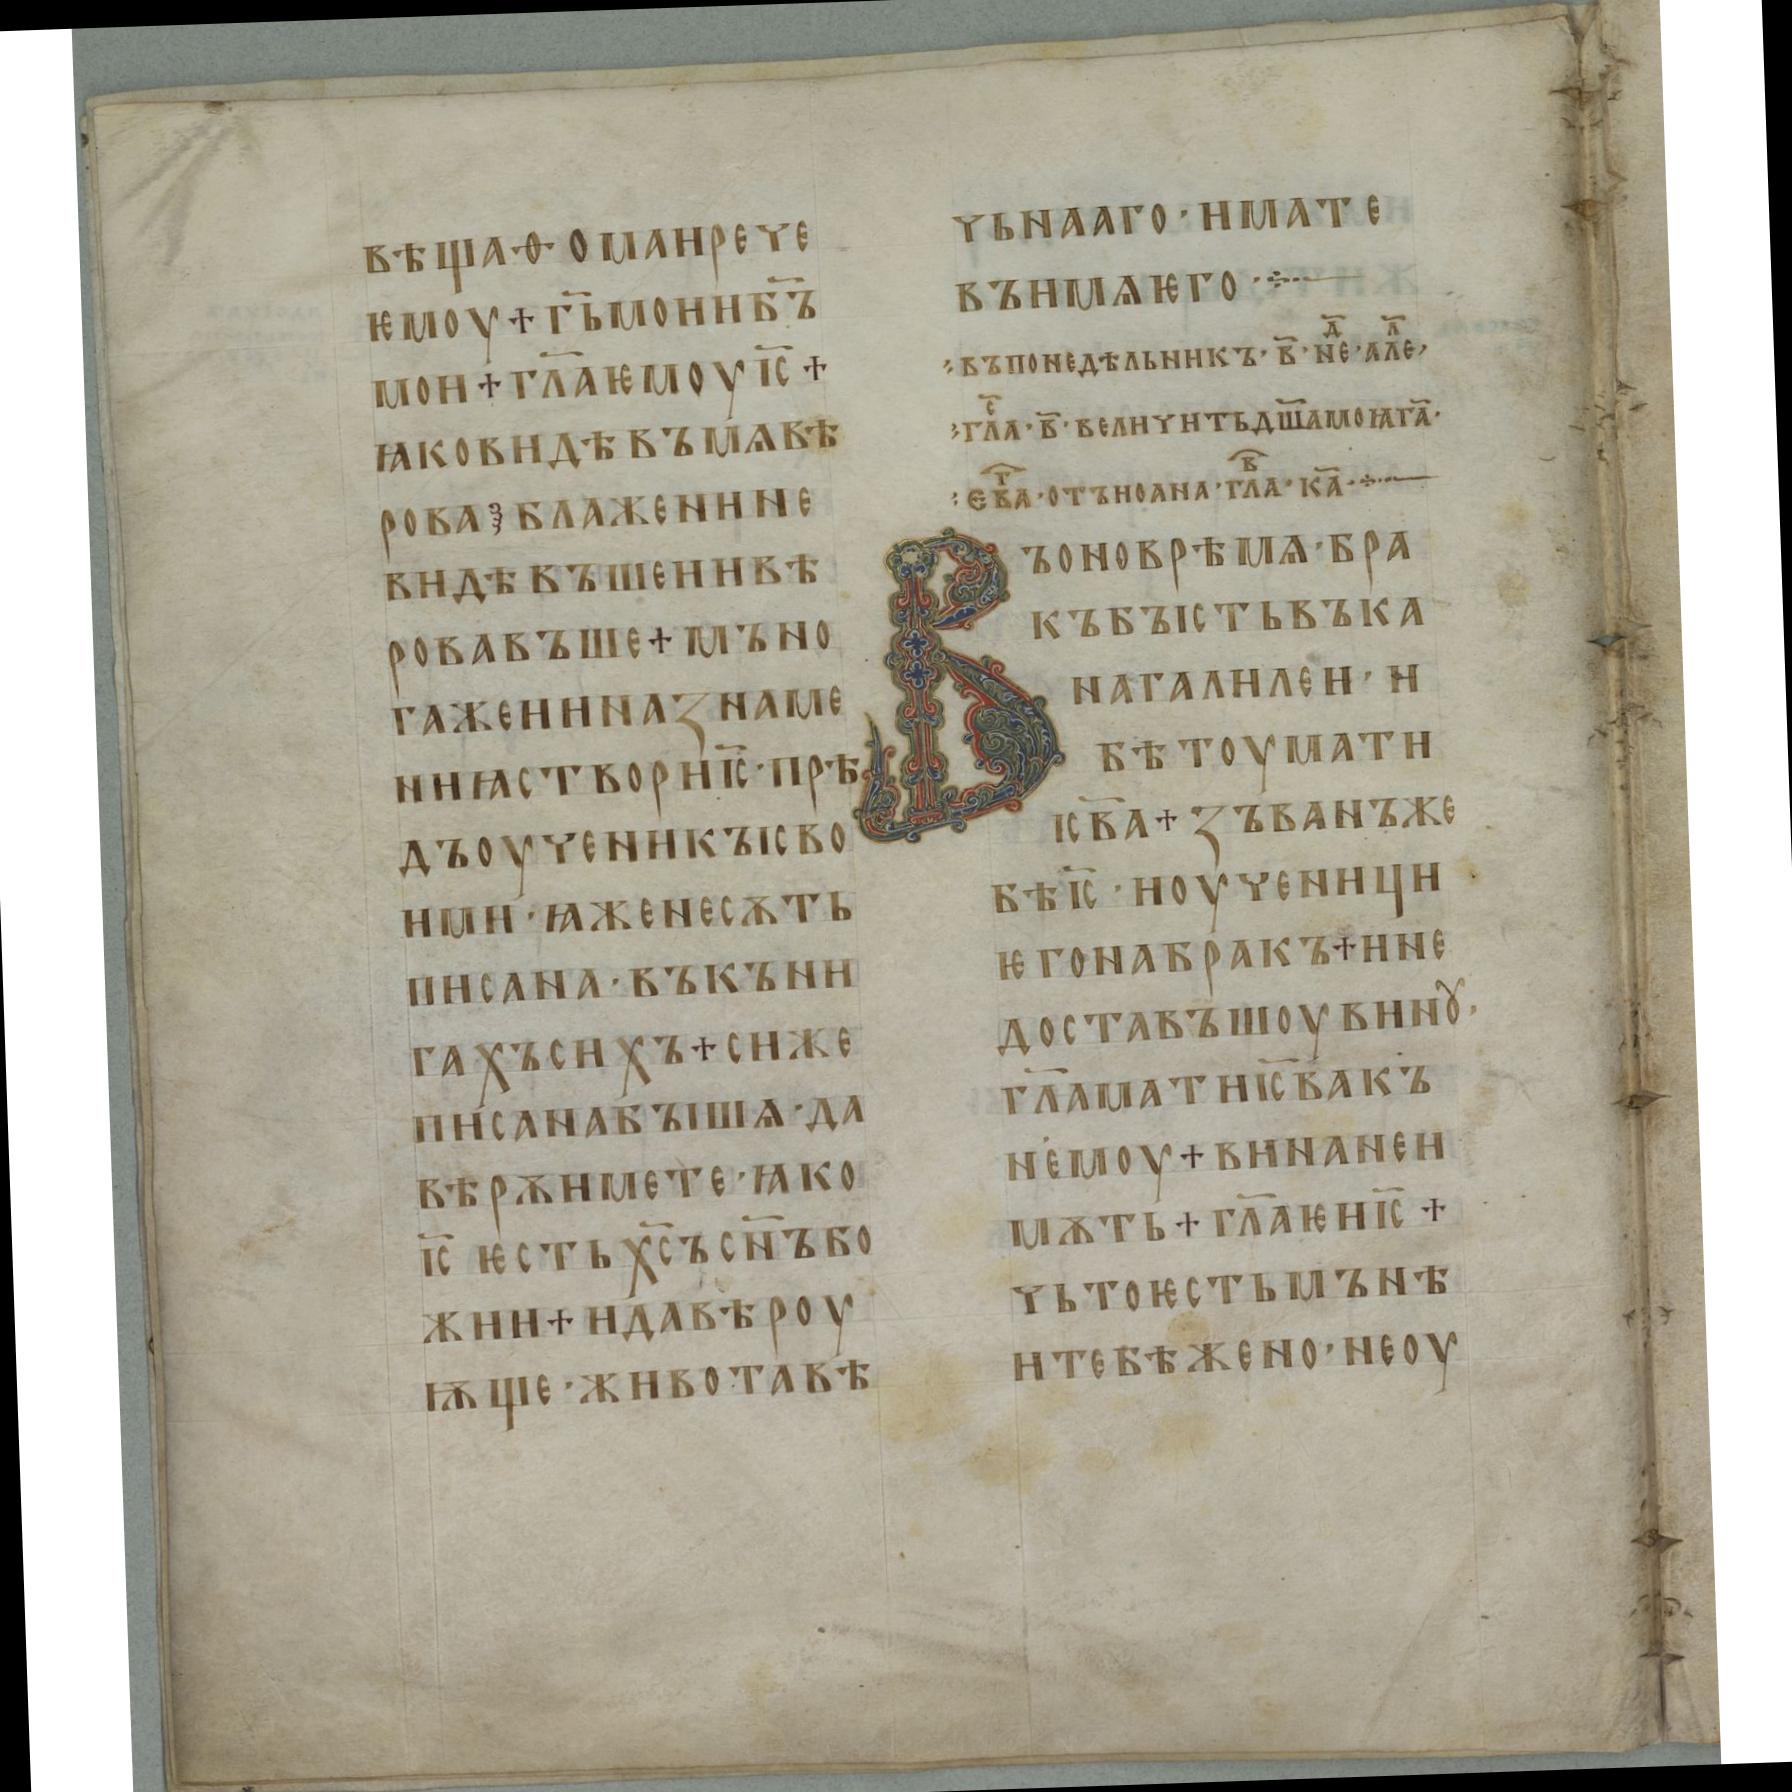 вѣща·ѳ·омаирече
ѥмоу+г҃ьмоиб҃ъ
мои+гл҃аѥмоуіс҃+
ꙗковидѣвъмѧвѣ
рова⁘блажениине
видѣвъшеиивѣ
ровавъше+мъно
гажеииназнаме
ниꙗствориіс҃·прѣ
дъоученикъісво
ими·ꙗженесѫть
писана·въкъни
гахъсихъ+сиже
писанабъішѧ·да
вѣрѫимете·ꙗко
іс҃ ѥстьхс҃ъсн҃ъбо
жии+идавѣроу
ѭще·животавѣ
чьнааго·имате
въимѧѥго·÷··—
въпонедѣльникъ·в҃·нед·алле·
глас·в҃·величитьдш҃амоꙗга҃·
єва҃г·отъиоана·глав·ка҃·÷··—
Въоноврѣмѧ·бра
къбъістьвъка
нагалилеи·и
бѣтоумати
ісв҃а+зъванъже
бѣіс҃·иоученици
ѥгонабракъ+ине
доставъшоувинꙋ·
гл҃аматиіс҃вакъ
немоу+винанеи
мѫть+гл҃аѥиіс҃+
чьтоѥстьмънѣ
итебѣжено·неоу